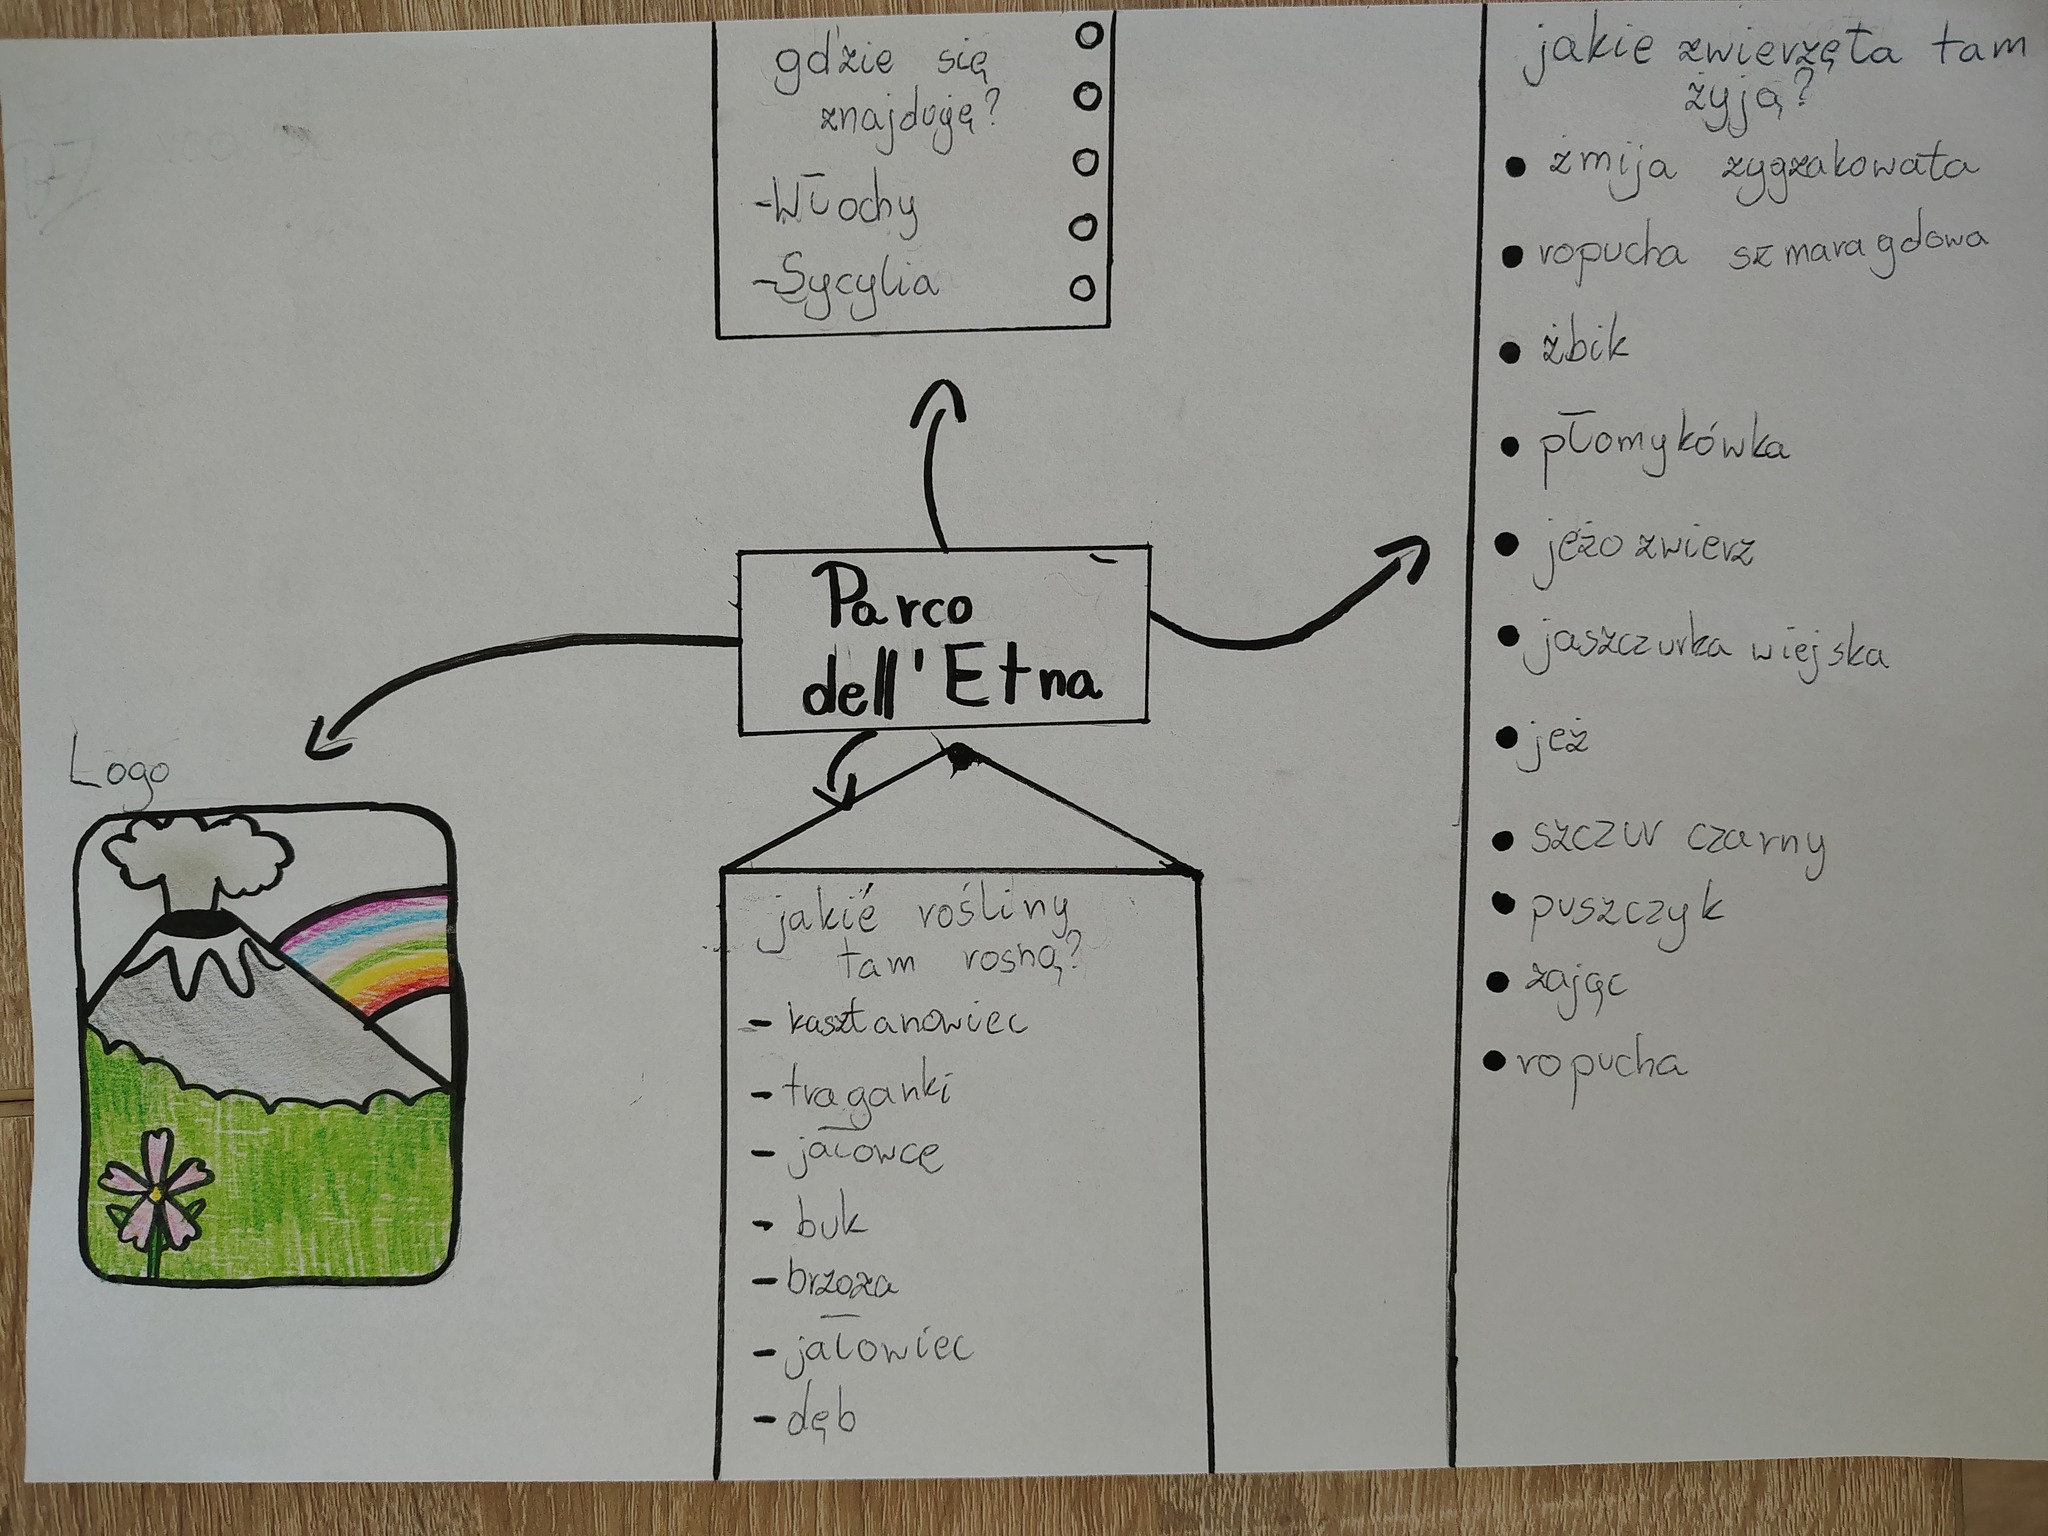 gdzie się
znajduję?
-Włochy
-Sycylia
jakie zwierzęta tam
żyją?
• żmija zygzakowata
• ropucha szmaragdowa
• żbik
• płomykówka
• jeżozwierz
• jaszczurka wiejska
• jeż
• szczur czarny
• puszczyk
• zając
• ropucha
Parco
dell'Etna
Logo
jakie rośliny
tam rosną?
- kasztanowiec
- traganki
- jałowce
- buk
- brzoza
- jałowiec
- dęb